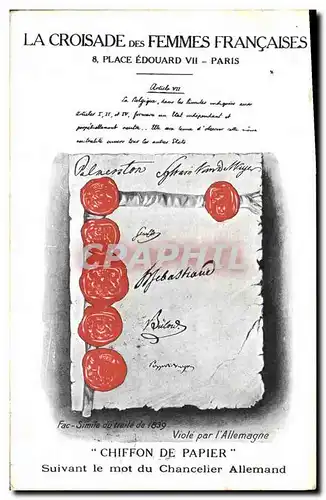 LA CROISADE DES FEMMES FRANÇAISES
8, PLACE ÉDOUARD VII – PARIS
Article VII
La Belgique, dans les limites indiquées aux
articles I, II, et IV, formera un Etat indépendant et
perpétuellement neutre. Elle sera tenue d'observer cette même
neutralité envers tous les autres Etats
Palmerston Sylvain Van de Weyer
Senfft
H Sebastiani
Bülow
Pozzo di Borgo
CARPHILA
Fac-Simile du traité de 1839
Violé par l'Allemagne
"CHIFFON DE PAPIER"
Suivant le mot du Chancelier Allemand